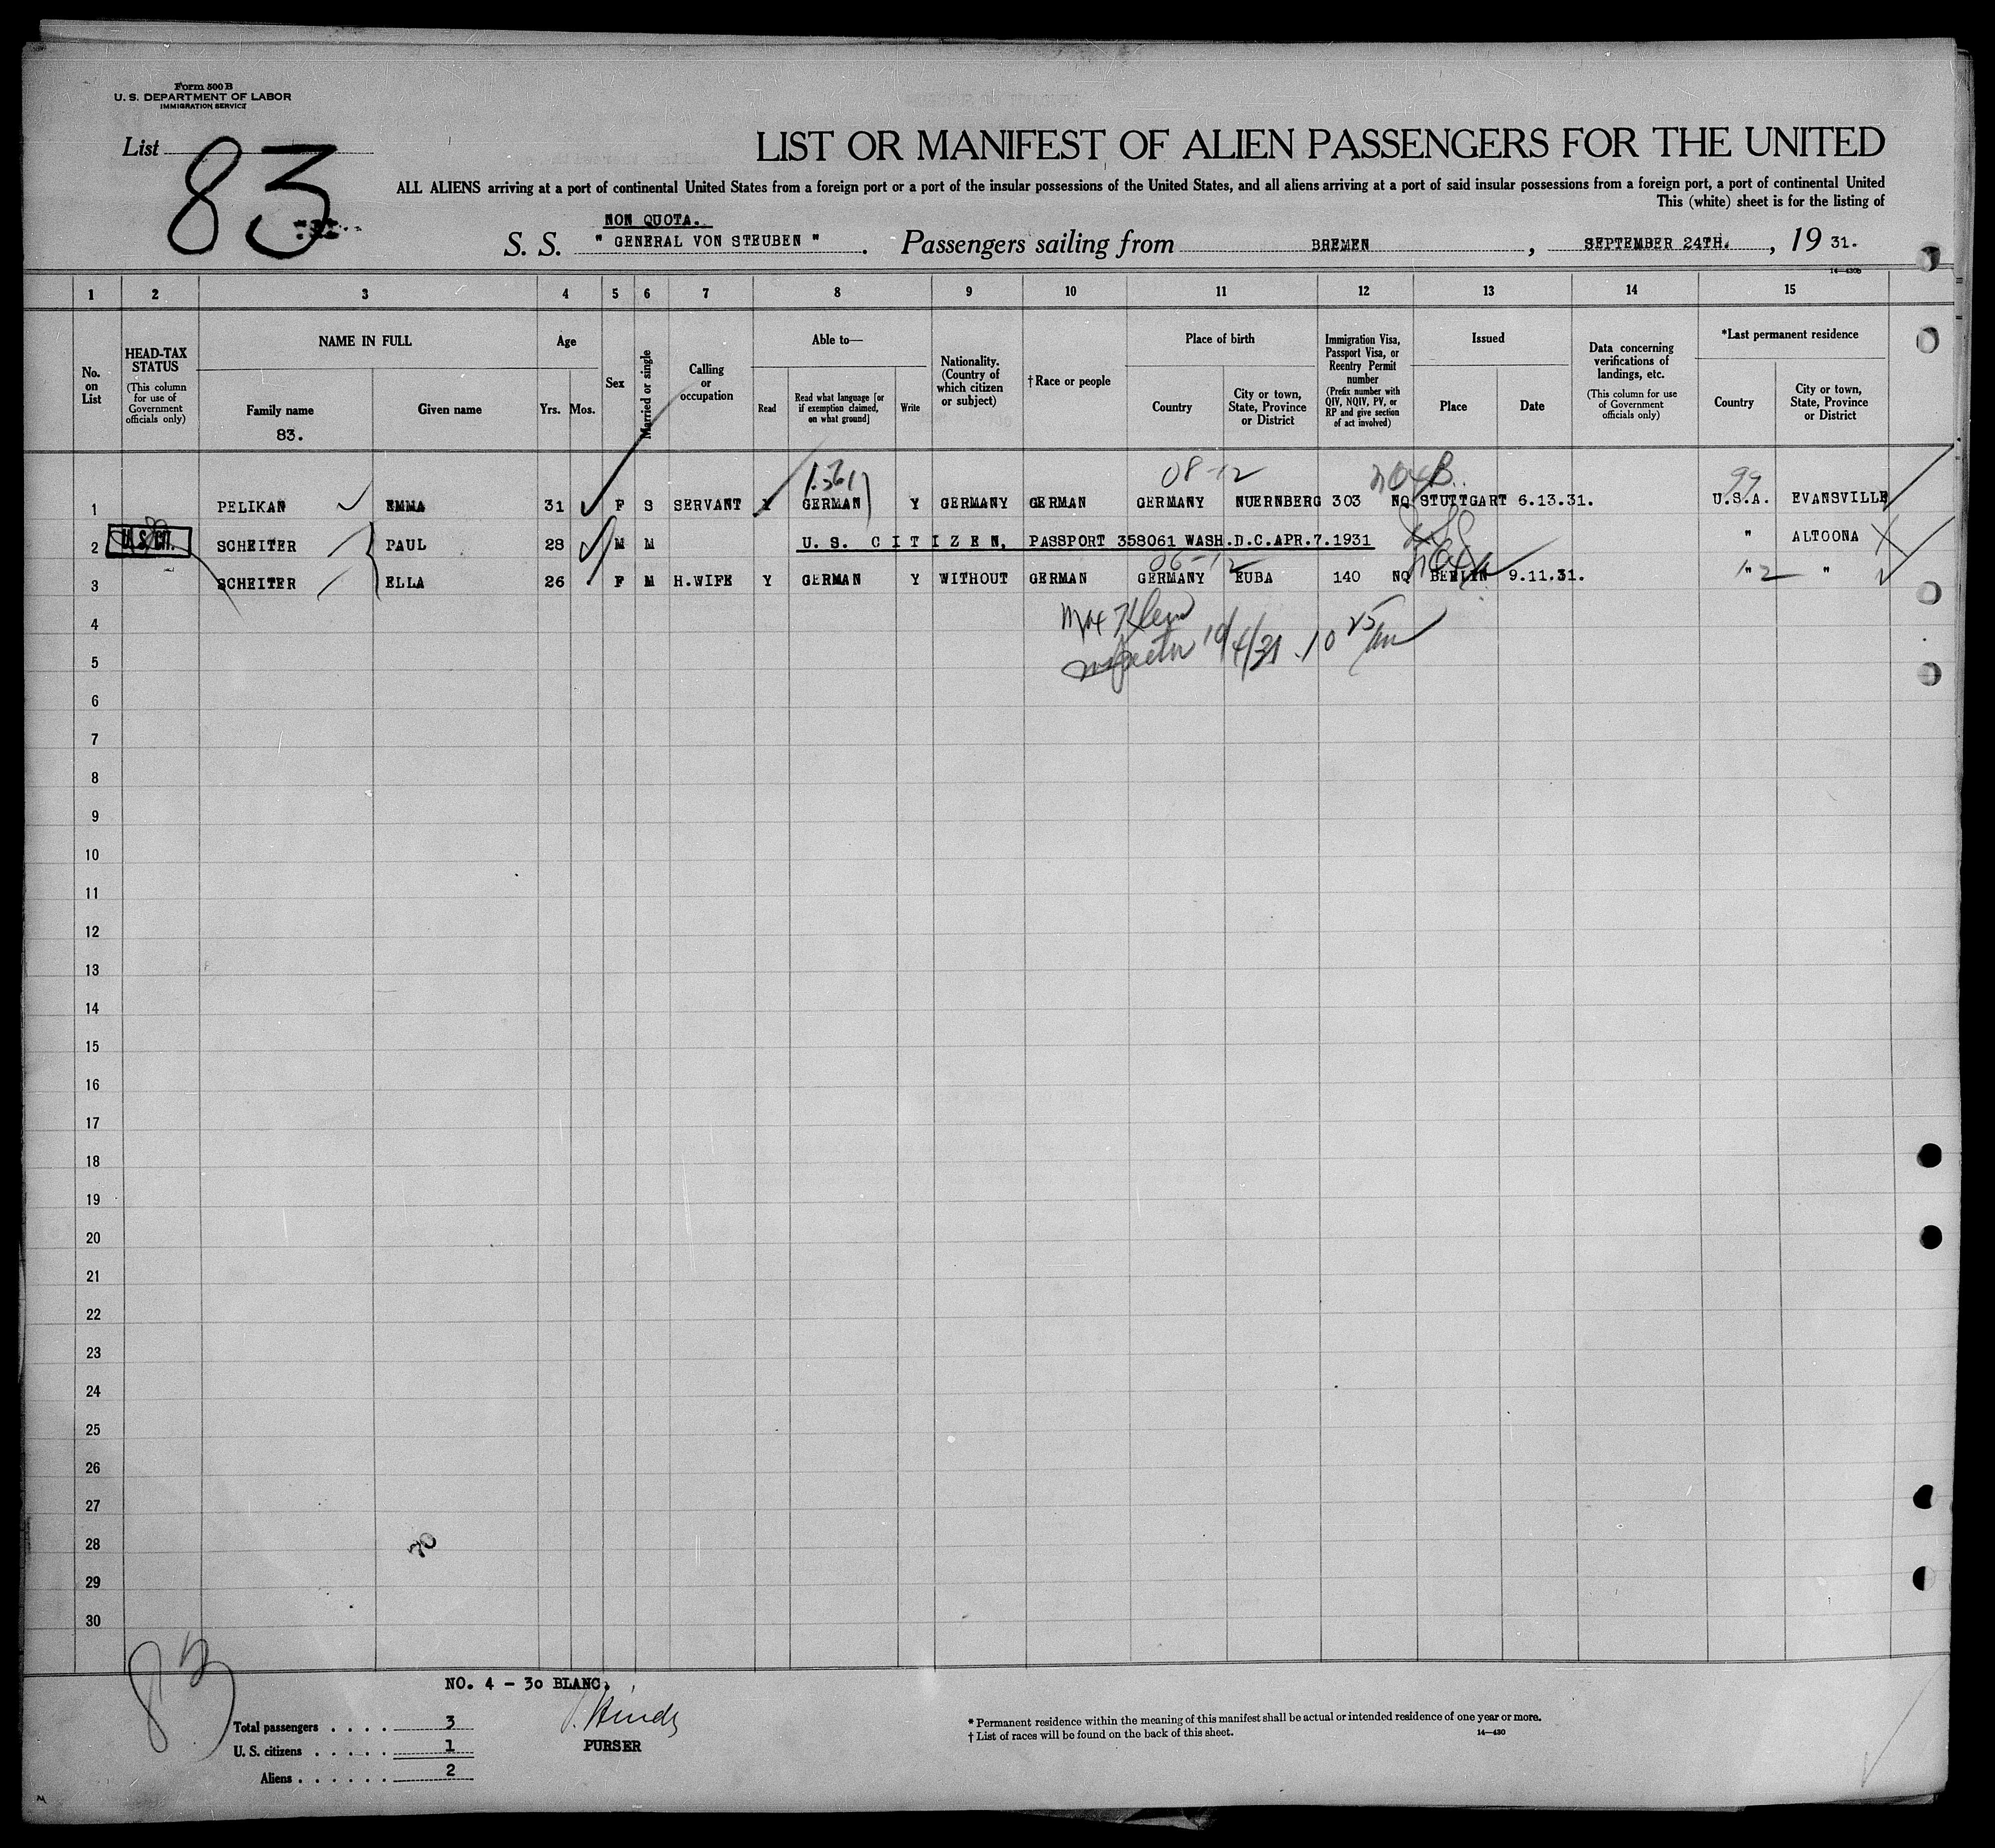 Form 500 B
U. S. DEPARTMENT OF LABOR
IMMIGRATION SERVICE
List 83
LIST OR MANIFEST OF ALIEN PASSENGERS FOR THE UNITED
ALL ALIENS arriving at a port of continental United States from a foreign port or a port of the insular possessions of the United States, and all aliens arriving at a port of said insular possessions from a foreign port, a port of continental United
This (white) sheet is for the listing of
NON QUOTA.
S. S. " GENERAL VON STEUBEN ". Passengers sailing from BREMEN, SEPTEMBER 24TH., 19 31.
14—430b
1 2 3 4 5 6 7 8 9 10 11 12 13 14 15
No. on List
HEAD-TAX STATUS
(This column for use of Government officials only)
NAME IN FULL
Family name
83.
Given name
Age
Yrs. Mos.
Sex
Married or single
Calling or occupation
Able to—
Read
Read what language [or if exemption claimed, on what ground]
Write
Nationality. (Country of which citizen or subject)
† Race or people
Place of birth
Country
City or town, State, Province or District
Immigration Visa, Passport Visa, or Reentry Permit number
(Prefix number with QIV, NQIV, PV, or RP and give section of act involved)
Issued
Place
Date
Data concerning verifications of landings, etc.
(This column for use of Government officials only)
*Last permanent residence
Country
City or town, State, Province or District
08-12
99
1 PELIKAN EMMA 31 F S SERVANT Y GERMAN Y GERMANY GERMAN GERMANY NUERNBERG 303 NQ STUTTGART 6.13.31. U.S.A. EVANSVILLE
2 U.S. CIT. SCHEITER PAUL 28 M M U. S. CITIZEN, PASSPORT 358061 WASH.D.C.APR.7.1931 " ALTOONA
06-12
3 SCHEITER ELLA 26 F M H.WIFE Y GERMAN Y WITHOUT GERMAN GERMANY EUBA 140 NQ BERLIN 9.11.31. " "
4
Inspector 10/4/31
5
6
7
8
9
10
11
12
13
14
15
16
17
18
19
20
21
22
23
24
25
26
27
28
29
30
83
NO. 4 - 30 BLANC.
Total passengers . . . . 3
U. S. citizens . . . . . 1
Aliens . . . . . . 2
PURSER
* Permanent residence within the meaning of this manifest shall be actual or intended residence of one year or more.
† List of races will be found on the back of this sheet.
14—430